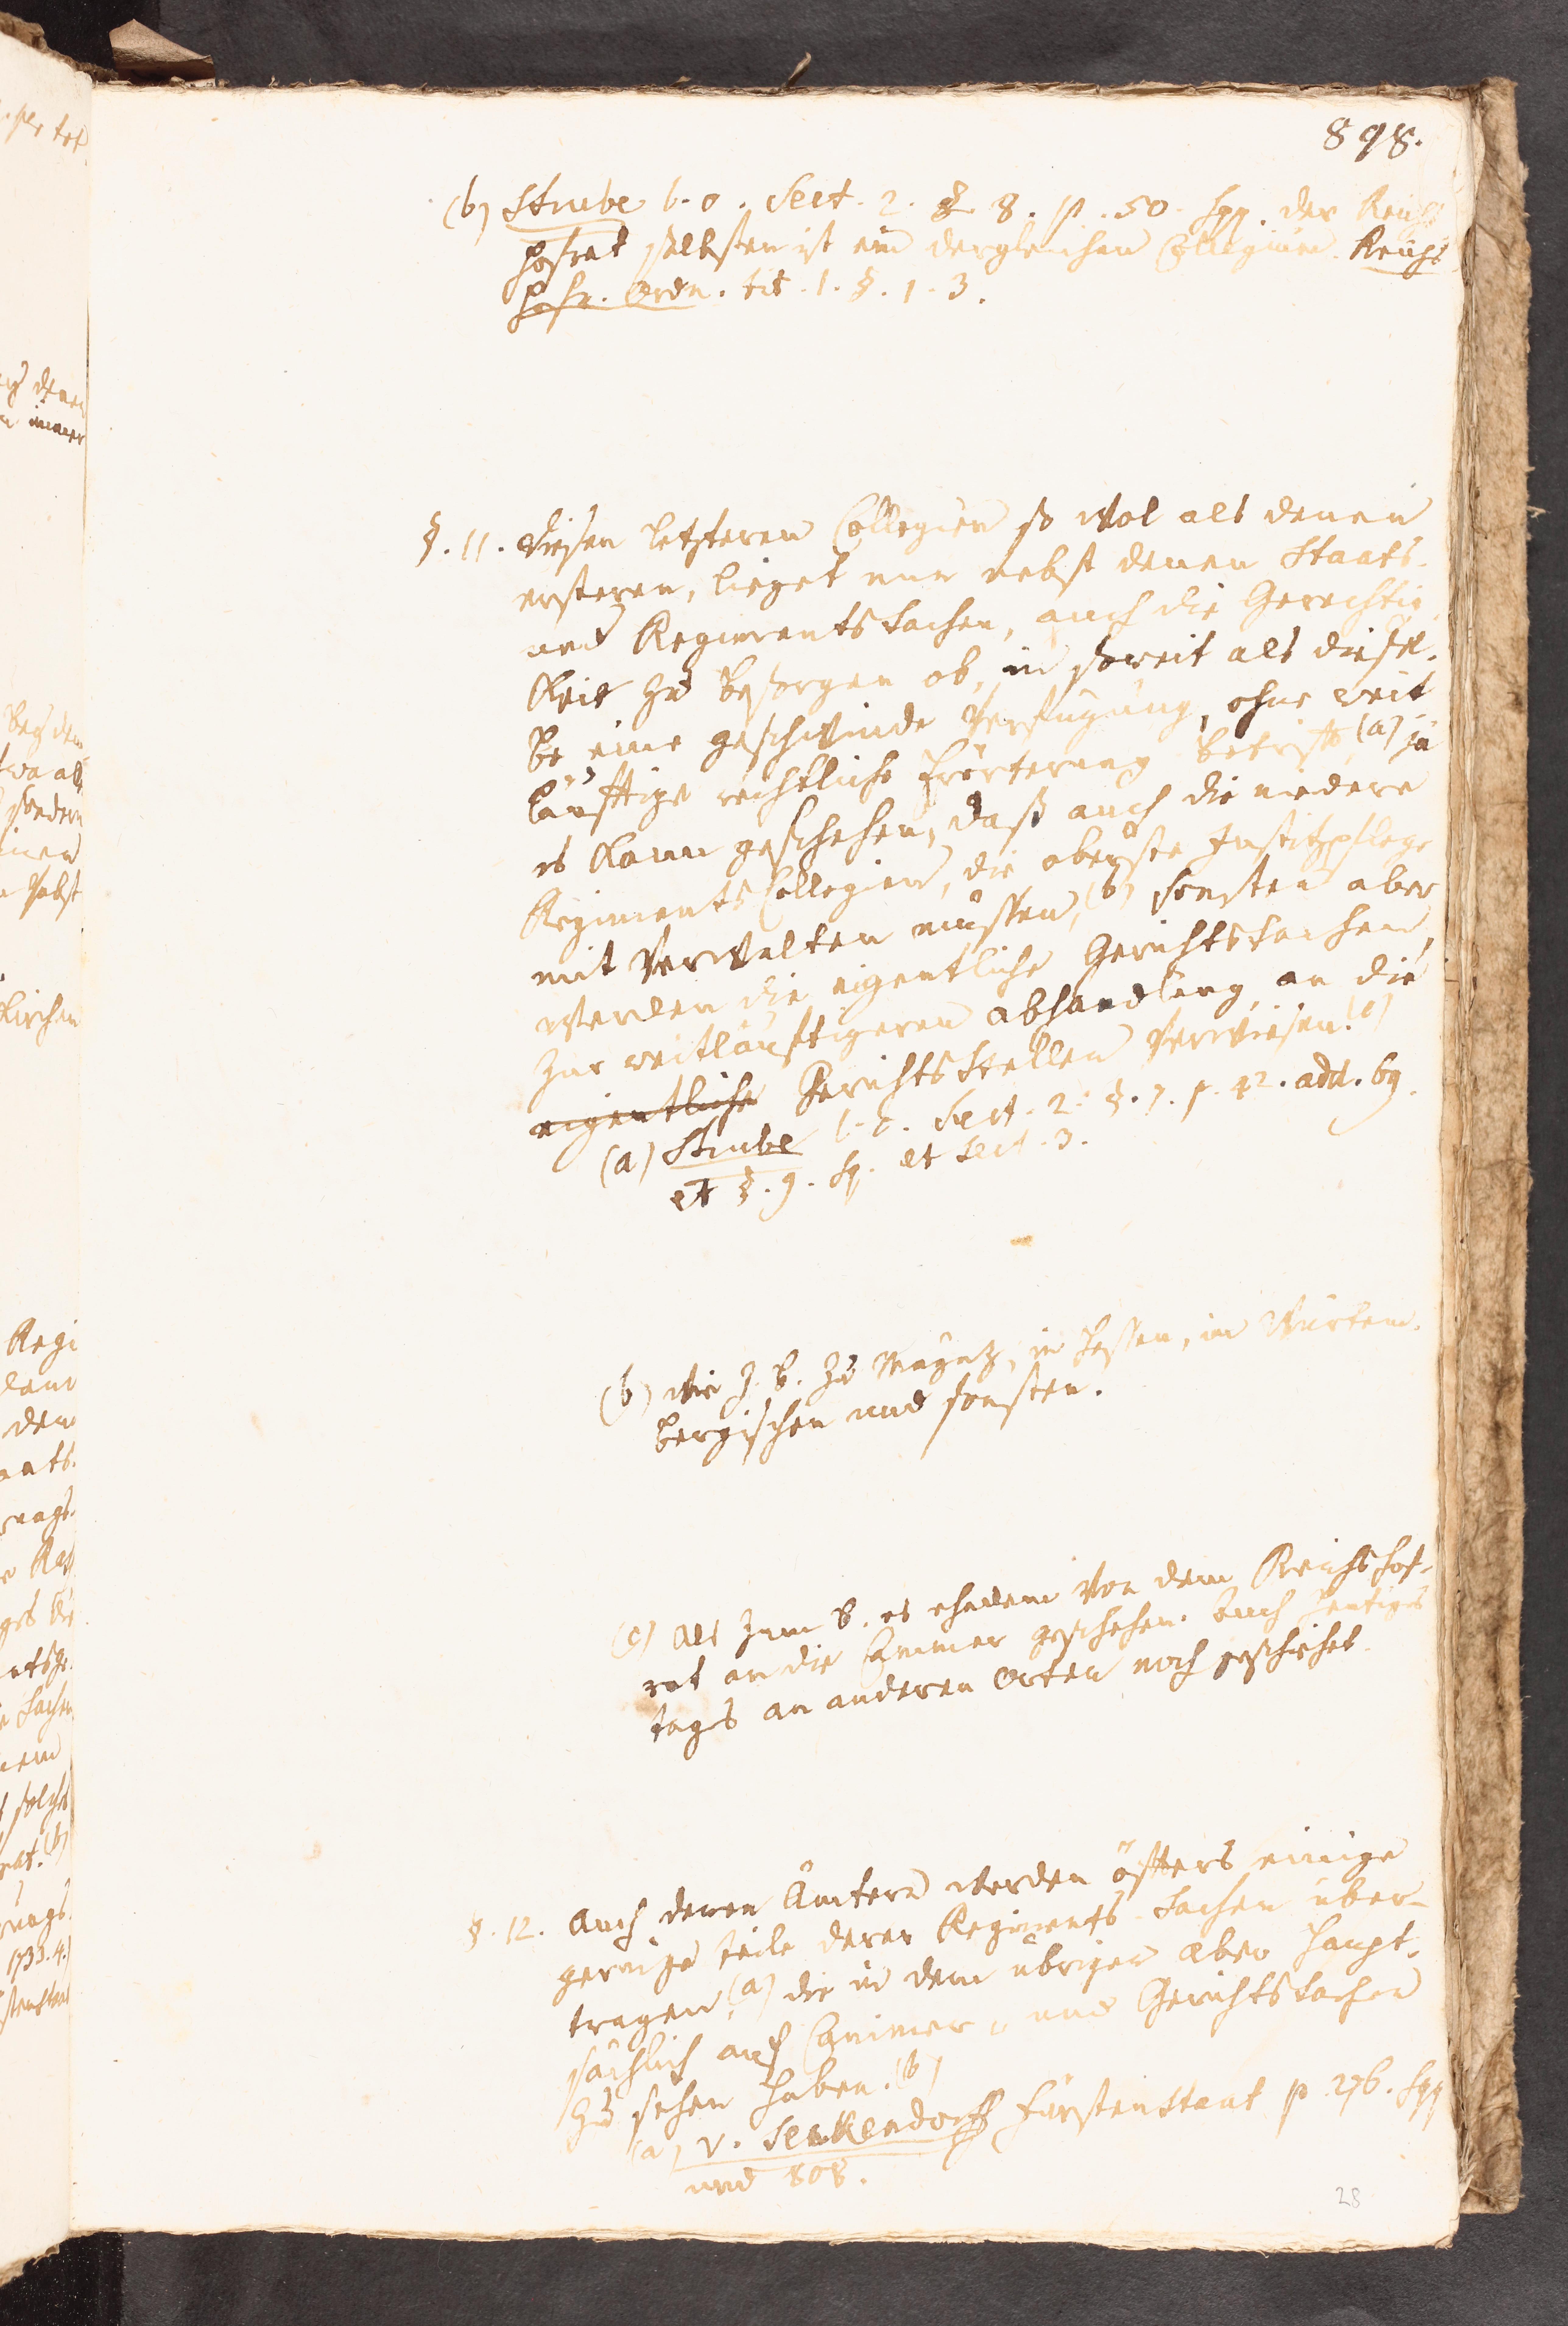 898.
(b) Strube l. c. Sect. 2. § 8. p. 50. sqq. der Reichs
hofrat selbsten ist ein dergleichen Collegium. Reichs
hofr. Ordn. tit. 1. §. 1. 3.
§. 11. diesen letzteren Collegien so wol als denen
ersteren, lieget nun nebst denen Staats-
und Regimentssachen, auch die Gerechtig-
keit zu besorgen ob, in soweit als diesel-
be eine geschwinde Verfügung, ohne weit
läufftige rechtliche Erörterung betrifft, (a) ja
es kann geschehen, daß auch die niedere
Regiments Collegien, die oberste Justitzpflege
mit verwalten müssen, (b) sonsten aber
werden die eigentliche Gerichtssachen,
zur weitläufftigeren abhandlung, an die
eigentliche Gerichtsstellen verwiesen. (c)
(a) Strube l. c. Sect. 2. §. 7. p. 42. add. 69.
et §. 9. sq. et Sect. 3.
(b) wie z. B. zu Maÿntz, in Hessen, im Würtem-
bergischen und sonsten.
(c) als zum B. es ehedem von dem Reichshof-
rat an die Cammer geschehen. Auch heutiges
tages an anderen Orten noch geschiehet.
§. 12. Auch denen Ämtern werden öffters einige
geringe teile derer Regiments-Sachen über-
tragen, (a) die in dem übrigen aber haupt-
sächlich auf Cammer- und Gerichtssachen
zu sehen haben. (b)
(a) v. Seckendorff Fürstenstaat p. 276. sqq
und 808.
28